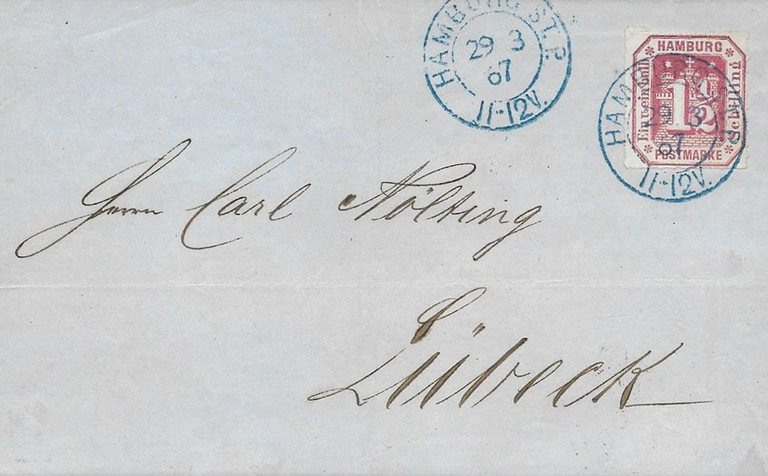 HAMBURG ST.P.
29 3
67
11-12V.
HAMBURG
Ein und ein halb
1 1/2
Schilling
POSTMARKE
HAMBURG ST.P.
29 3
67
11-12V.
Herrn Carl Nölting
Lübeck